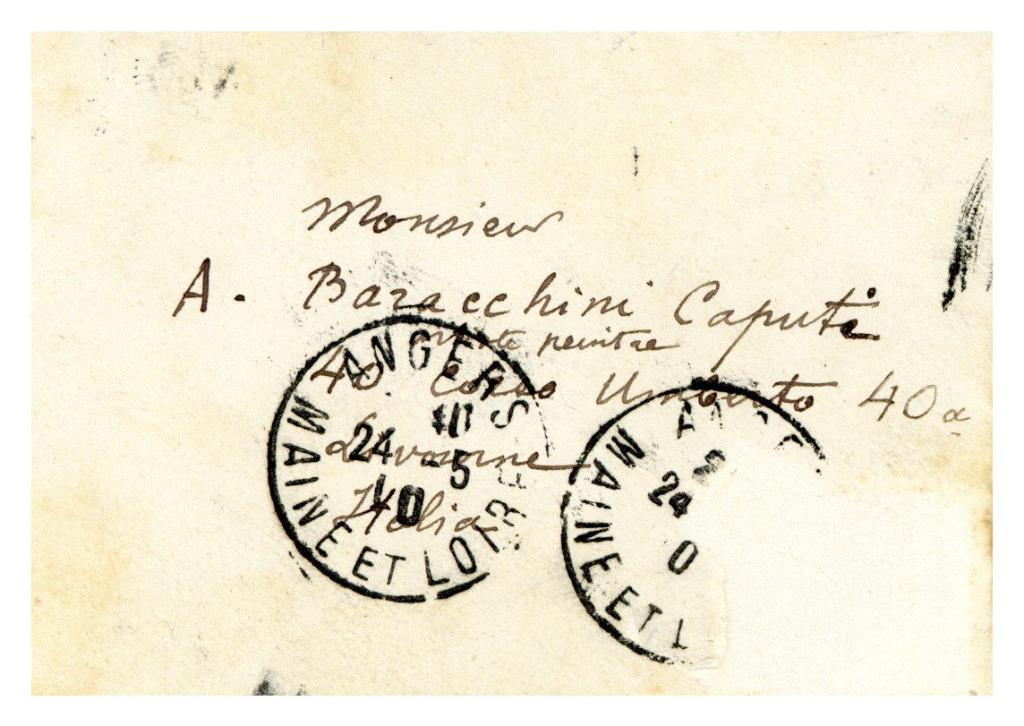 Monsieur
A. Baracchini Caputi
artiste peintre
40 Corso Umberto 40a
Livourne
Italia
ANGERS
10
24 -5
10
MAINE ET LOIRE
ANGE
2
24
0
MAINE ET L